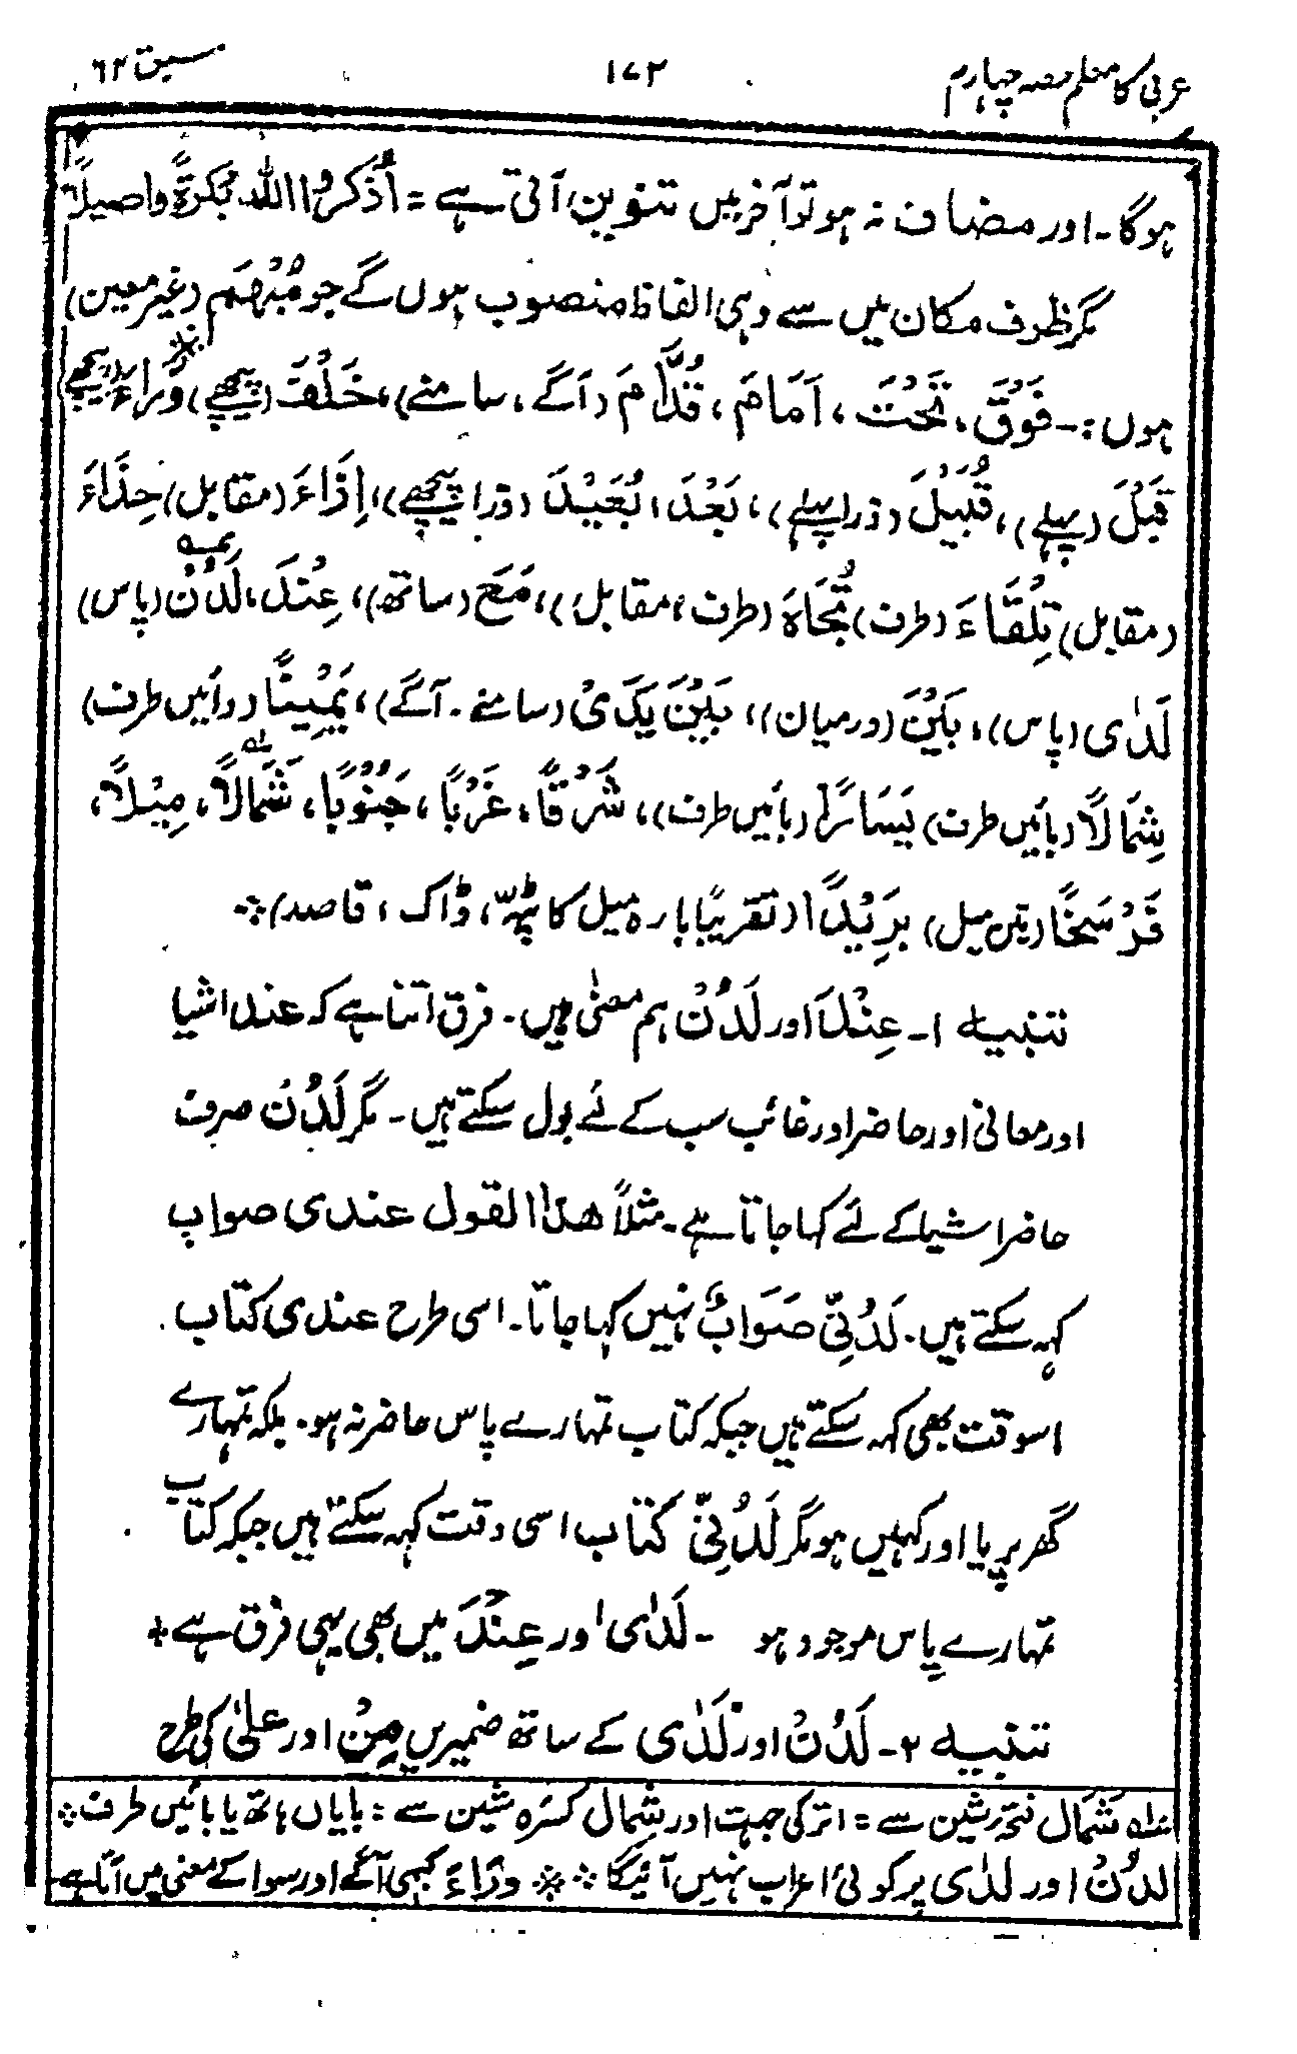 عربی کا معلم حصہ چہارم ۱۷۲ سبق ۶۲
ہوگا۔ اور مضاف نہ ہو تو آخر میں تنوین آتی ہے = اُذْکُرُوا اللہ بُکرَۃً واصیلاً
مگر ظروف مکان میں سے وہی الفاظ منصوب ہوں گے جو مُبْھَم (غیر معین)
ہوں :۔ فَوْقَ، تَحْتَ، اَمَامَ، قُدَّامَ (آگے، سامنے)، خَلْفَ (پیچھے) وَرَاءَ※ (پیچھے)
قَبْلَ (پہلے)، قُبَیْلَ (ذرا پہلے)، بَعْدَ، بُعَیْدَ (ذرا پیچھے)، اِزَاءَ (مقابل) حِذَاءَ
(مقابل) تِلْقَاءَ (طرف) تُجَاہَ (طرف، مقابل)، مَعَ (ساتھ)، عِنْدَ، لَدُنْ (پاس)
لَدٰی (پاس)، بَیْنَ (درمیان)، بَیْنَ یَدَیْ (سامنے۔ آگے)، یَمِیْنًا (دائیں طرف)
شِمَالًا (بائیں طرف) یَسَارًا (بائیں طرف)، شَرْقًا، غَرْبًا، جَنُوْبًا، شَمَالًا، مِیْلًا،
فَرْسَخًا (تین میل) بَرِیْدًا (تقریبًا بارہ میل کا پٹہّ، ڈاک، قاصد)
تنبیہ ۱۔ عِنْدَ اور لَدُنْ ہم معنٰی ہیں۔ فرق اتنا ہے کہ عند اشیا
اور معانی اور حاضر اور غائب سب کے لئے بول سکتے ہیں۔ مگر لَدُنْ صرف
حاضر اشیا کے لئے کہا جاتا ہے۔ مثلاً ھذا القول عندی صواب
کہہ سکتے ہیں۔ لَدُنِّی صَوَابٌ نہیں کہا جاتا۔ اسی طرح عندی کتاب
اسوقت بھی کہہ سکتے ہیں جبکہ کتاب تمہارے پاس حاضر نہ ہو۔ بلکہ تمہارے
گھر پر یا اور کہیں ہو مگر لَدُنِّی کتاب اسی وقت کہہ سکتے ہیں جبکہ کتاب
تمہارے پاس موجود ہو ۔ لَدٰی اور عِنْدَ میں بھی یہی فرق ہے
تنبیہ ۲۔ لَدُنْ اور لَدٰی کے ساتھ ضمیریں مِنْ اور علٰی کی طرح
شَمَال فتحہ شین سے = اتر کی جہت اور شِمال کسرہ شین سے = بایاں ہاتھ یا بائیں طرف
لدُنْ اور لدٰی پر کوئی اعراب نہیں آئیگا ※ وَرَاءَ کبھی آگے اور سوا کے معنی میں آتا ہے